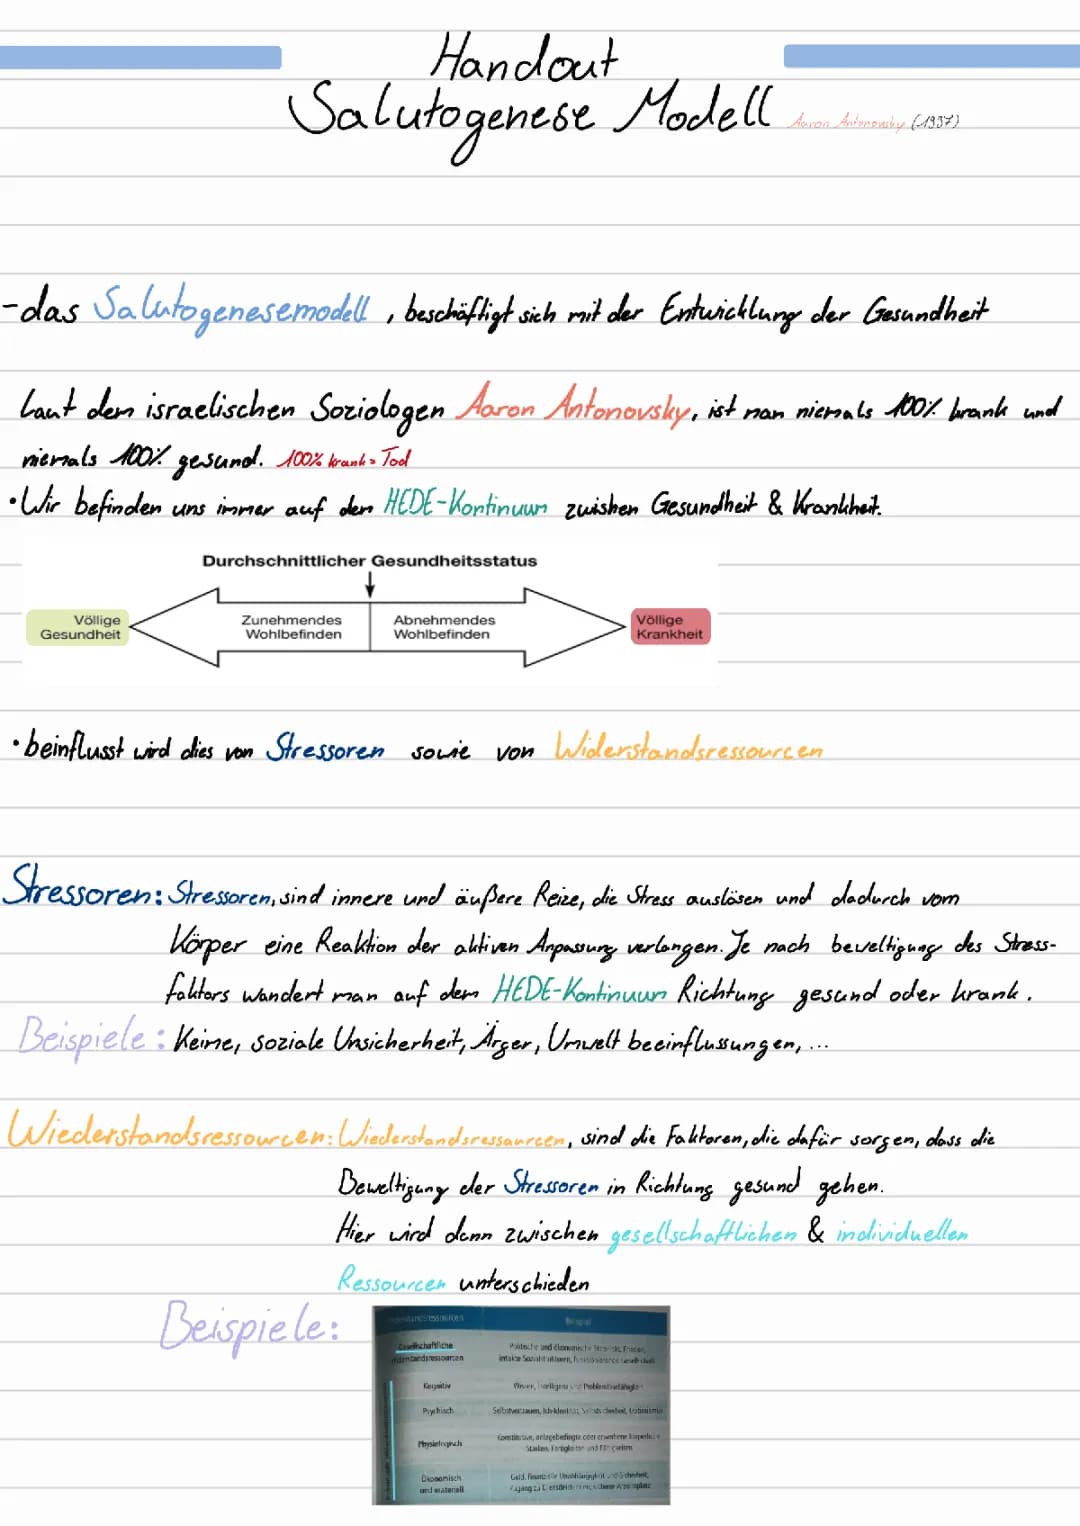 Handout
Salutogenese Modell Aaron Antonovsky (1997)
-das Salutogenesemodell, beschäftigt sich mit der Entwicklung der Gesundheit
Laut dem israelischen Soziologen Aaron Antonovsky, ist man niemals 100% krank und
niemals 100% gesund. 100% krank = Tod
•Wir befinden uns immer auf den HEDE-Kontinuum zwishen Gesundheit & Krankheit.
Durchschnittlicher Gesundheitsstatus
Völlige Gesundheit
Zunehmendes Wohlbefinden
Abnehmendes Wohlbefinden
Völlige Krankheit
•beinflusst wird dies von Stressoren sowie von Widerstandsressourcen
Stressoren: Stressoren, sind innere und äußere Reize, die Stress auslösen und dadurch vom
Körper eine Reaktion der aktiven Anpassung verlangen. Je nach beweltigung des Stress-
faktors wandert man auf dem HEDE-Kontinuum Richtung gesund oder krank.
Beispiele: Keime, soziale Unsicherheit, Ärger, Umwelt beeinflussungen, ...
Wiederstandsressourcen: Wiederstandsressourcen, sind die Faktoren, die dafür sorgen, dass die
Beweltigung der Stressoren in Richtung gesund gehen.
Hier wird dann zwischen gesellschaftlichen & individuellen
Ressourcen unterschieden
Beispiele:
Beispiel
Gesellschaftliche
Politische und ökonomische Frieden,
intakte
Kognitiv
Wissen, Intelligenz und
Psychisch
Selbstvertrauen, Optimismus
Physiologisch
Konstitution, anlagebedingte oder erworbene körperliche
Stärken, Fertigkeiten und Fähigkeiten
Ökonomisch
und materiell
Geld, finanzielle Unabhängigkeit und Sicherheit,
Zugang zu